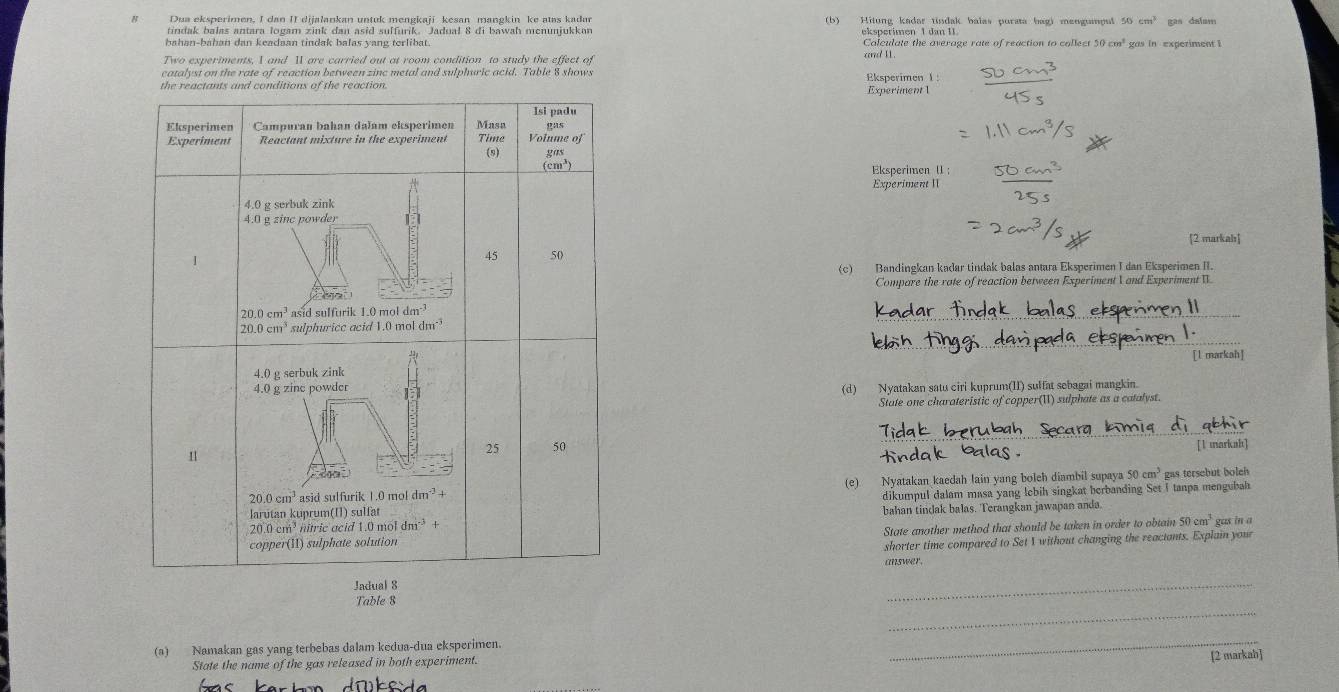 8 Dua eksperimen, I dan II dijalankan untuk mengkaji kesan mangkin ke atas kadar
tindak balas antara logam zink dan asid sulfurik. Jadual 8 di bawah menunjukkan
bahan-bahan dan keadaan tindak balas yang terlibat.
Two experiments, I and II are carried out at room condition to study the effect of
catalyst on the rate of reaction between zinc metal and sulphuric acid. Table 8 shows
the reactants and conditions of the reaction.
Eksperimen
Experiment
Campuran bahan dalam eksperimen
Reactant mixture in the experiment
Masa
Time
(s)
Isi padu
gas
Volume of
gas
(cm³)
I
4.0 g serbuk zink
4.0 g zinc powder
20.0 cm³ asid sulfurik 1.0 mol dm⁻³
20.0 cm³ sulphuricc acid 1.0 mol dm⁻³
45
50
II
4.0 g serbuk zink
4.0 g zinc powder
20.0 cm³ asid sulfurik 1.0 mol dm⁻³ +
larutan kuprum(II) sulfat
20.0 cm³ nitric acid 1.0 mol dm⁻³ +
copper(II) sulphate solution
25
50
Jadual 8
Table 8
(a) Namakan gas yang terbebas dalam kedua-dua eksperimen.
State the name of the gas released in both experiment.
Gas karbon dioksida
(b) Hitung kadar tindak balas purata bagi mengumpul 50 cm³ gas dalam
eksperimen I dan II.
Calculate the average rate of reaction to collect 50 cm³ gas in experiment I
and II.
Eksperimen I :
Experiment I
50 cm³
45 s
= 1.11 cm³/s
Eksperimen II :
Experiment II
50 cm³
25 s
= 2 cm³/s
[2 markah]
(c) Bandingkan kadar tindak balas antara Eksperimen I dan Eksperimen II.
Compare the rate of reaction between Experiment I and Experiment II.
Kadar tindak balas eksperimen II
lebih tinggi daripada eksperimen I.
[1 markah]
(d) Nyatakan satu ciri kuprum(II) sulfat sebagai mangkin.
State one charateristic of copper(II) sulphate as a catalyst.
Tidak berubah secara kimia di akhir
tindak balas.
[1 markah]
(e) Nyatakan kaedah lain yang boleh diambil supaya 50 cm³ gas tersebut boleh
dikumpul dalam masa yang lebih singkat berbanding Set I tanpa mengubah
bahan tindak balas. Terangkan jawapan anda.
State another method that should be taken in order to obtain 50 cm³ gas in a
shorter time compared to Set I without changing the reactants. Explain your
answer.
[2 markah]